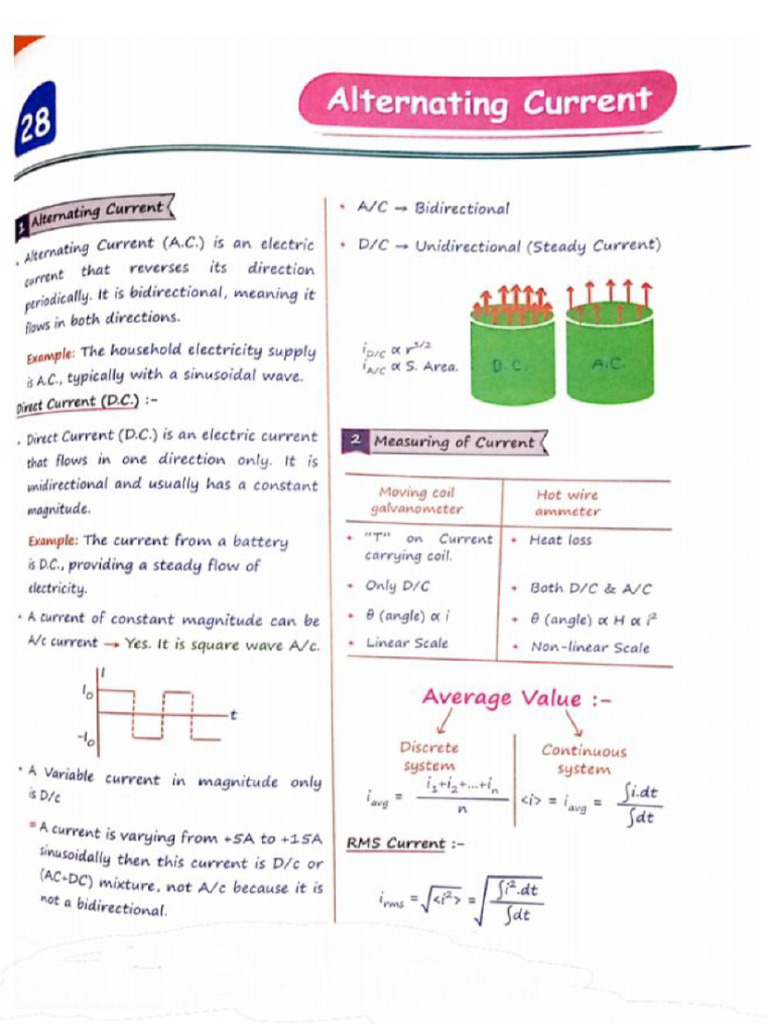 28
Alternating Current
1 Alternating Current
• Alternating Current (A.C.) is an electric
current that reverses its direction
periodically. It is bidirectional, meaning it
flows in both directions.
Example: The household electricity supply
is A.C., typically with a sinusoidal wave.
Direct Current (D.C.) :-
• Direct Current (D.C.) is an electric current
that flows in one direction only. It is
unidirectional and usually has a constant
magnitude.
Example: The current from a battery
is D.C., providing a steady flow of
electricity.
• A current of constant magnitude can be
A/c current → Yes. It is square wave A/c.
I
I₀
t
-I₀
• A Variable current in magnitude only
is D/c
= A current is varying from +5A to +15A
sinusoidally then this current is D/c or
(AC+DC) mixture, not A/c because it is
not a bidirectional.
• A/C → Bidirectional
• D/C → Unidirectional (Steady Current)
i_D/C ∝ r^3/2
i_A/C ∝ S. Area.
D.C.
A.C.
2 Measuring of Current
Moving coil
galvanometer
Hot wire
ammeter
• "T" on Current
carrying coil.
• Heat loss
• Only D/C
• Both D/C & A/C
• θ (angle) ∝ i
• θ (angle) ∝ H ∝ i²
• Linear Scale
• Non-linear Scale
Average Value :-
Discrete
system
Continuous
system
i_avg = (i₁+i₂+...+iₙ)/n
<i> = i_avg = ∫i.dt/∫dt
RMS Current :-
i_rms = √<i²> = √(∫i².dt/∫dt)